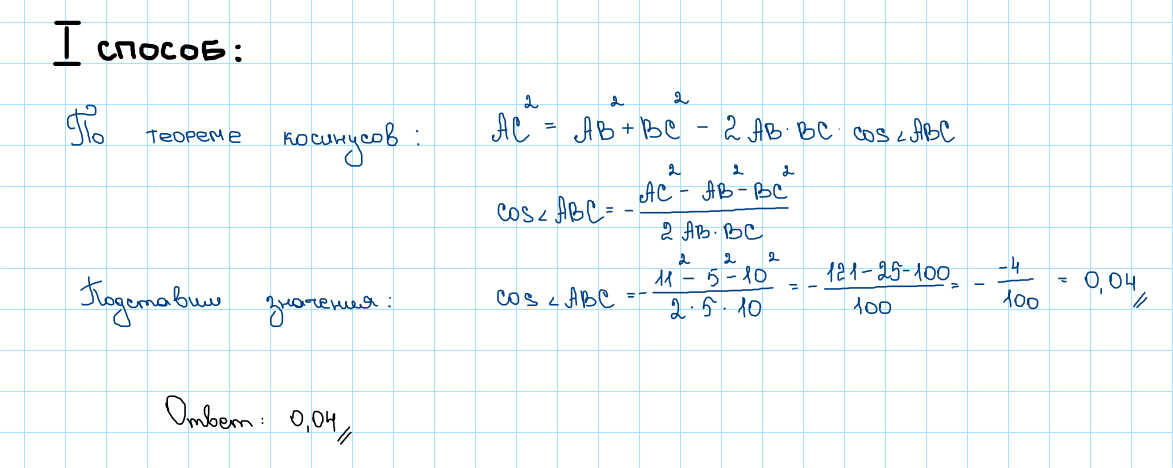 I способ:
По теореме косинусов: AC² = AB² + BC² - 2 AB · BC · cos∠ABC
cos∠ABC = - (AC² - AB² - BC²) / (2 AB · BC)
Подставим значения: cos∠ABC = - (11² - 5² - 10²) / (2 · 5 · 10) = - (121 - 25 - 100) / 100 = - (-4) / 100 = 0,04
Ответ: 0,04